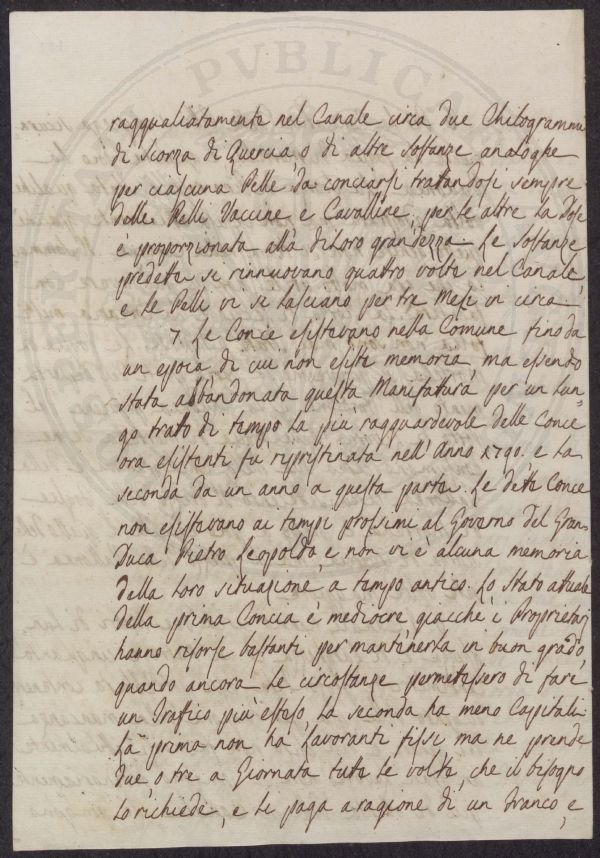 ragguagliatamente nel Canale circa due Chilogrammi
di Scorza di Quercia, o di altre Sostanze analoghe
per ciascuna Pelle da conciarsi trattandosi sempre
delle Pelli Vaccine e Cavalline, per le altre la Dose
è proporzionata alla di Loro grandezza. Le Sostanze
predette si rinnuovano quattro volte nel Canale,
e le Pelli vi si lasciano per tre Mesi in circa
7. Le Conce esistevano nella Comune fino da
un epoca di cui non esiste memoria, ma essendo
stata abbandonata questa Manifattura per un lun-
go tratto di tempo la più ragguardevole delle Conce
ora esistenti fù ripristinata nell'Anno 1790. e la
seconda da un anno a questa parte. Le dette Conce
non esistevano ai tempi prossimi al Governo del Gran
Duca Pietro Leopoldo e non vi è alcuna memoria
della loro situazione a tempo antico. Lo Stato attuale
della prima Concia è mediocre giacchè i Proprietarj
hanno risorse bastanti per mantenerla in buon grado,
quando ancora le circostanze permettessero di fare
un Traffico più esteso, la seconda ha meno Capitali.
La prima non ha Lavoranti fissi ma ne prende
due o tre a Giornata tutte le volte, che il bisogno
lo richiede, e li paga a ragione di un Franco, e
PUBLICA